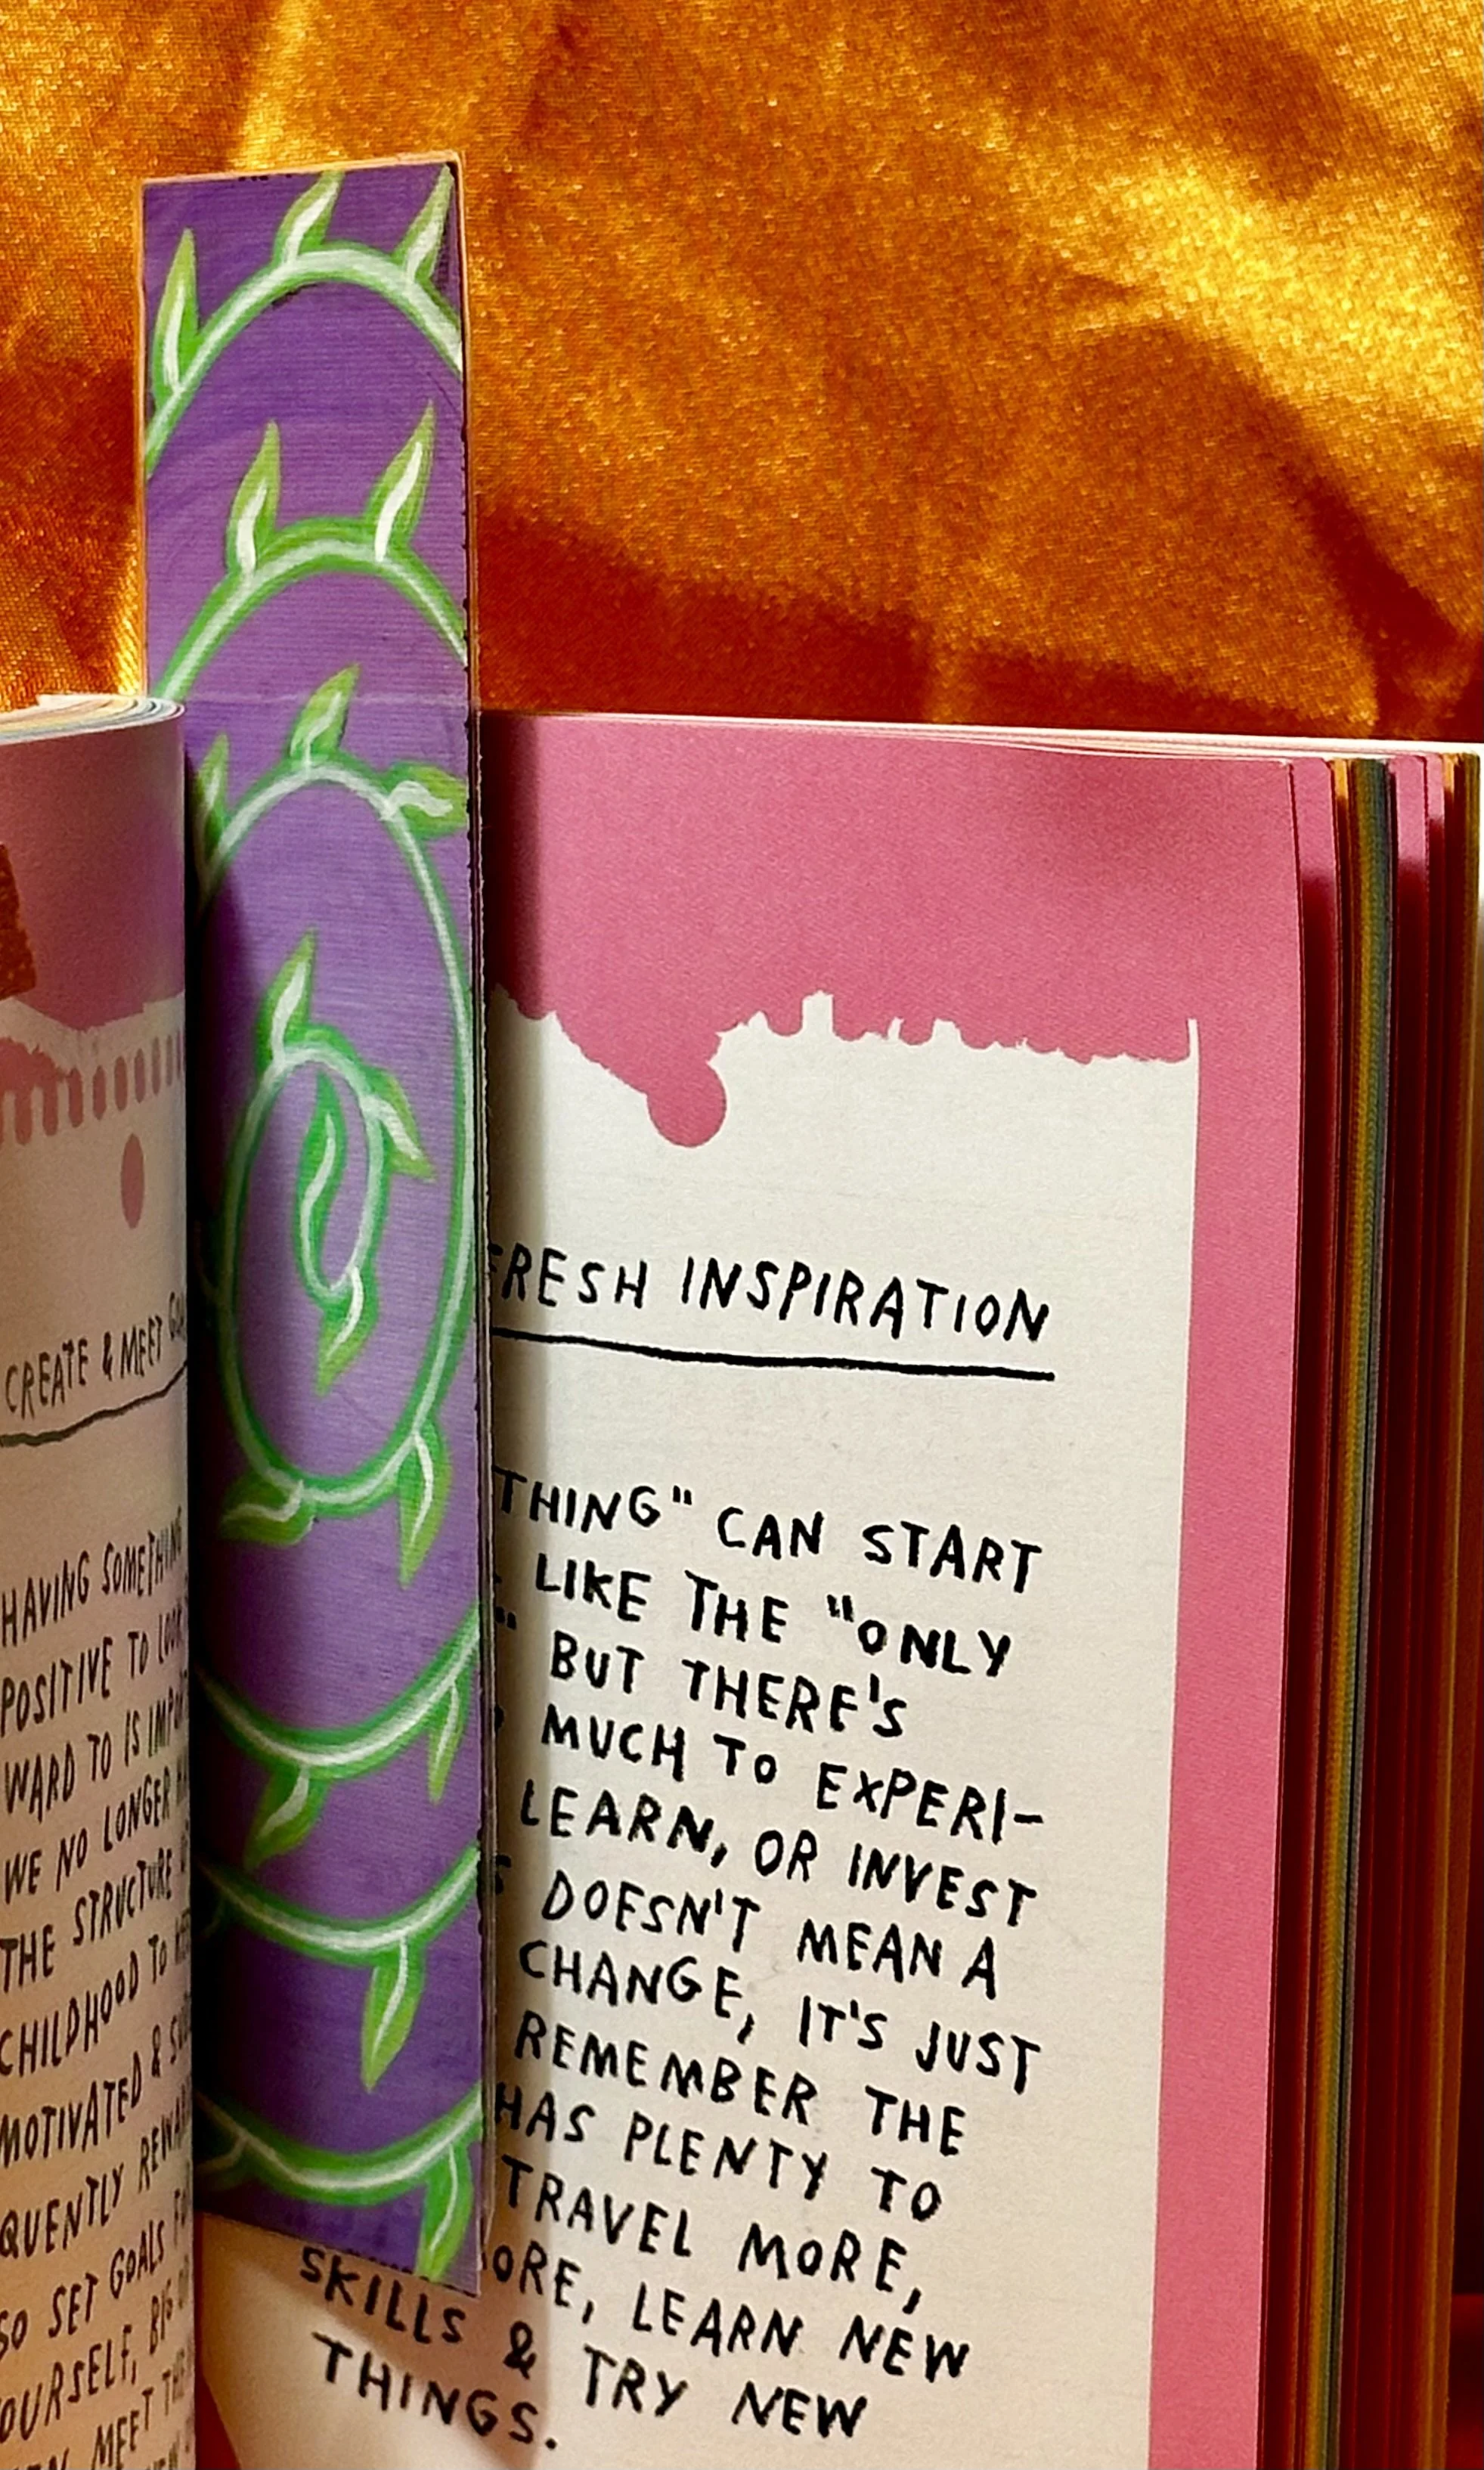 CREATE & MEET
HAVING SOMETHING
POSITIVE TO LOOK
WARD TO IS
WE NO LONGER
THE STRUCTURE
CHILDHOOD TO
MOTIVATED &
QUENTLY
SO SET GOALS
YOURSELF, BIG
MEET
FRESH INSPIRATION
THING" CAN START
LIKE THE "ONLY
" BUT THERE'S
MUCH TO EXPERI-
LEARN, OR INVEST
DOESN'T MEAN A
CHANGE, IT'S JUST
REMEMBER THE
HAS PLENTY TO
TRAVEL MORE,
ORE, LEARN NEW
SKILLS & TRY NEW
THINGS.